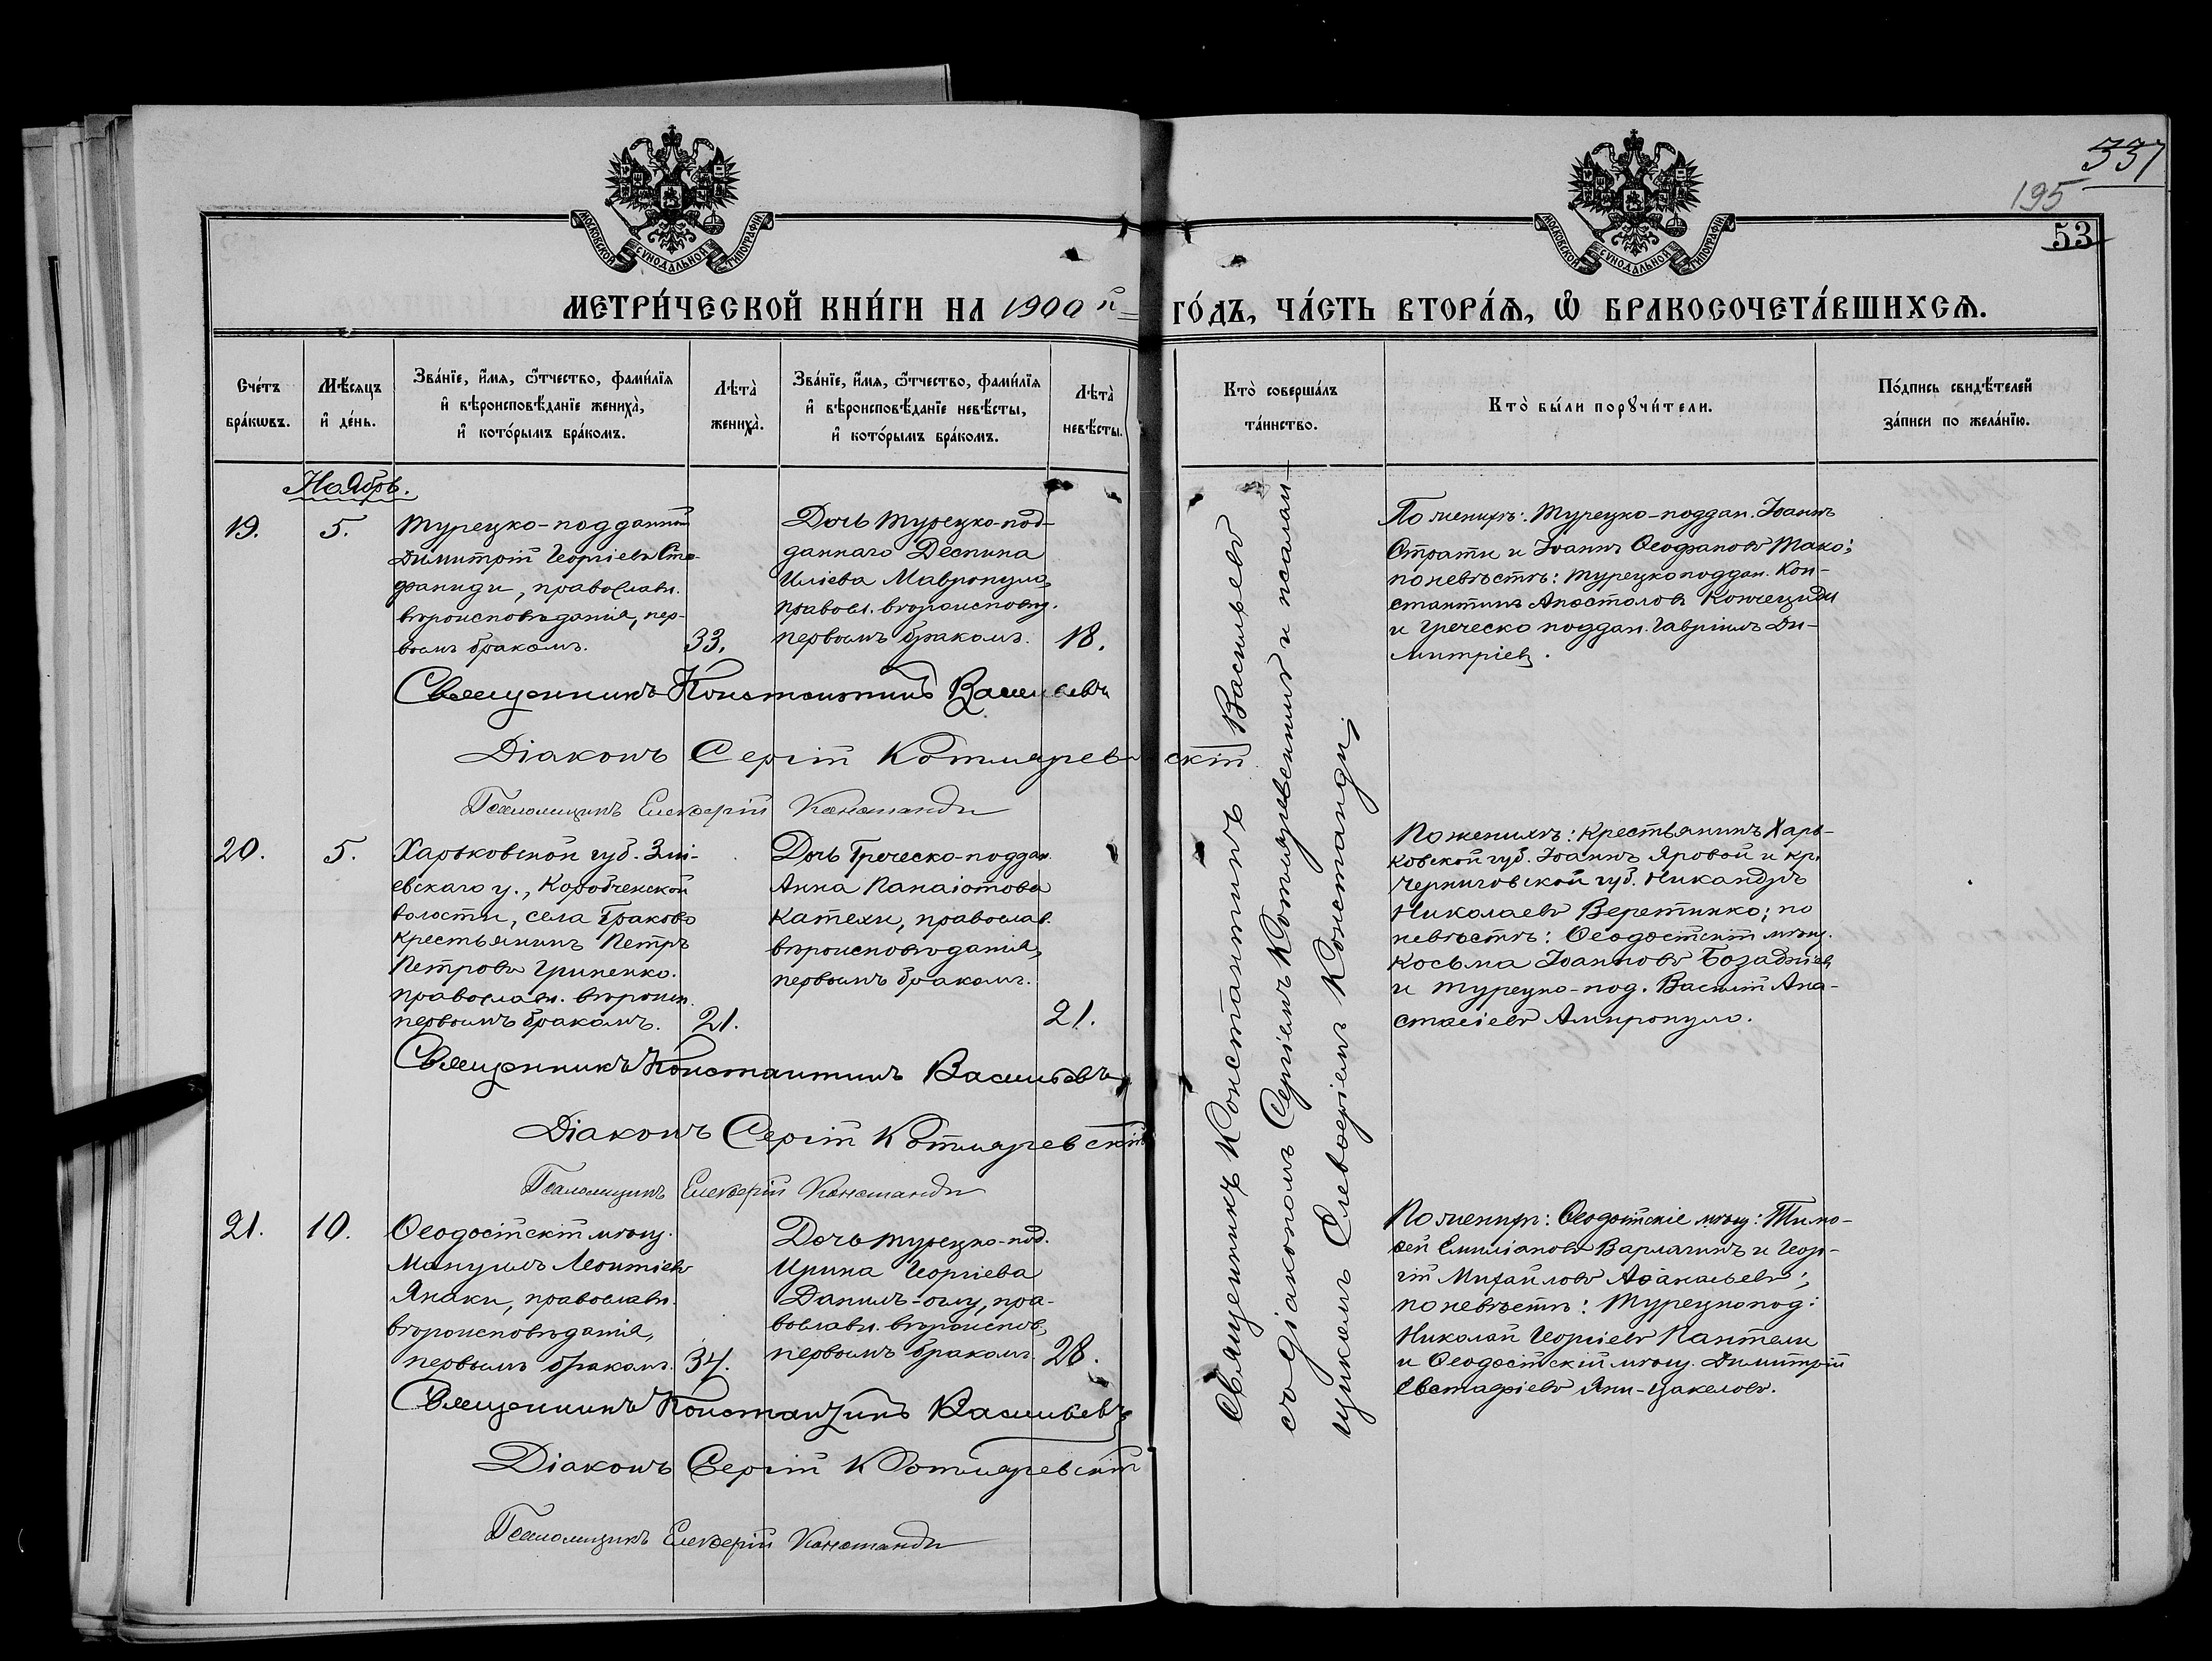 337
195
53
МОСКОВСКОЙ СѴНОДАЛЬНОЙ ТИПОГРАФІИ
МОСКОВСКОЙ СѴНОДАЛЬНОЙ ТИПОГРАФІИ
МЕТРИ́ЧЕСКОЙ КНИ́ГИ НА 1900 й ГО́ДЪ, ЧА́СТЬ ВТОРА́Я, Ѿ БРАКОСОЧЕТА́ВШИХСѦ.
Сче́тъ бра́кѡвъ.
Мѣ́сяцъ и҆ де́нь.
Зва́нїе, и҆́мя, ѻ҆́тчество, фами́лїя
и҆ вѣроисповѣ́данїе жениха̀,
и҆ кото́рымъ бра́комъ.
Лѣта̀ жениха̀.
Зва́нїе, и҆́мя, ѻ҆́тчество, фами́лїя
и҆ вѣроисповѣ́данїе невѣ́сты,
и҆ кото́рымъ бра́комъ.
Лѣта̀ невѣ́сты.
Кто̀ соверша́лъ
та́инство.
Кто̀ бы́ли порꙋчи́тели.
По́дпись свидѣ́телей
за́писи по жела́нїю.
Ноябрь.
19.
5.
Турецко-подданный
Димитрій Георгіевъ Сте-
фаниди, православн.
вѣроисповѣданія, пер-
вымъ бракомъ.
33.
Дочь турецко-под-
даннаго Деспина
Иліева Мавропуло,
правосл. вѣроисповѣд.
первымъ бракомъ.
18.
По женихѣ: Турецко-поддан. Іоаннъ
Страти и Іоаннъ Ѳеофановъ Тако;
по невѣстѣ: турецкоподдан. Кон-
стантинъ Апостоловъ
и Греческо поддан. Гавріилъ Ди-
митріевъ.
Священникъ Константинъ Васильевъ
Діаконъ Сергій Котляревскій
Псаломщикъ Елевѳерій Констанди
20.
5.
Харьковской губ. Змі-
евскаго у., Коробченской
волости, села Граково
крестьянинъ Петръ
Петровъ Гриненко.
православн. вѣроисп.
первымъ бракомъ.
21.
Дочь Греческо-поддан.
Анна Панаіотова
Катехи, православ.
вѣроисповѣданія,
первымъ бракомъ.
21.
По женихѣ: Крестьянинъ Харь-
ковской губ. Іоаннъ Яровой и кр.
Черниговской губ. Никандръ
Николаевъ Веретинко; по
невѣстѣ: Ѳеодосійскій мѣщ.
Косьма Іоанновъ Бозаджіевъ
и турецко-под. Василій Ана-
стасіевъ Амиропуло.
Священникъ Константинъ Васильевъ
Діаконъ Сергій Котляревскій
Псаломщикъ Елевѳерій Констанди
21.
10.
Ѳеодосійскій мѣщ.
Мануилъ Леонтіевъ
Янаки, православн.
вѣроисповѣданія,
первымъ бракомъ.
34.
Дочь турецко-под.
Ирина Георгіева
Даниилъ-оглу, пра-
вославн. вѣроисповѣ,
первымъ бракомъ.
28.
По женихѣ: Ѳеодосійскіе мѣщ: Тимо-
ѳей Емиліановъ Варлагинъ и Геор-
гій Михайловъ Аѳанасьевъ;
по невѣстѣ: Турецкопод:
Николай Георгіевъ Пантели
и Ѳеодосійскій мѣщ. Димитрій
Евстафіевъ Яни-Цакеловъ.
Священникъ Константинъ Васильевъ
Діаконъ Сергій Котляревскій
Псаломщикъ Елевѳерій Констанди
Священникъ Константинъ Васильевъ
съ діакономъ Сергіемъ Котляревскимъ и псалом-
щикомъ Елевѳеріемъ Констанди.